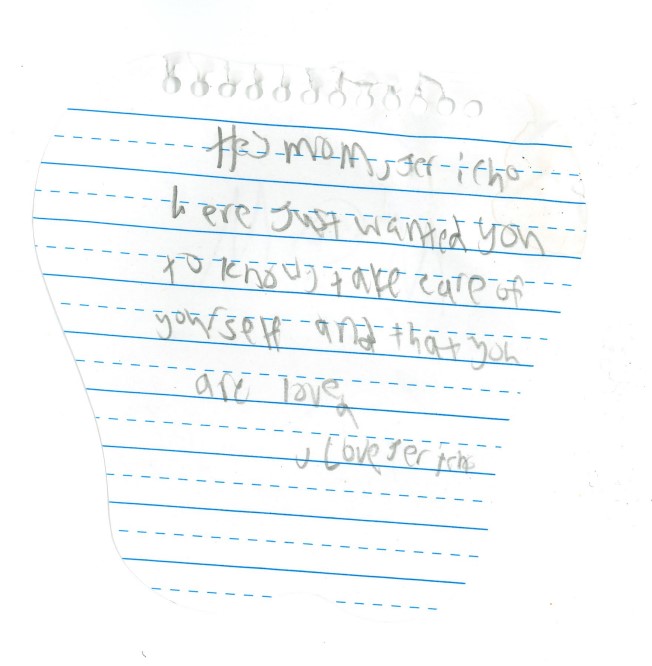 Hey mom, Jericho
here Just wanted you
to know, take care of
yourself and that you
are loved
, Love Jericho